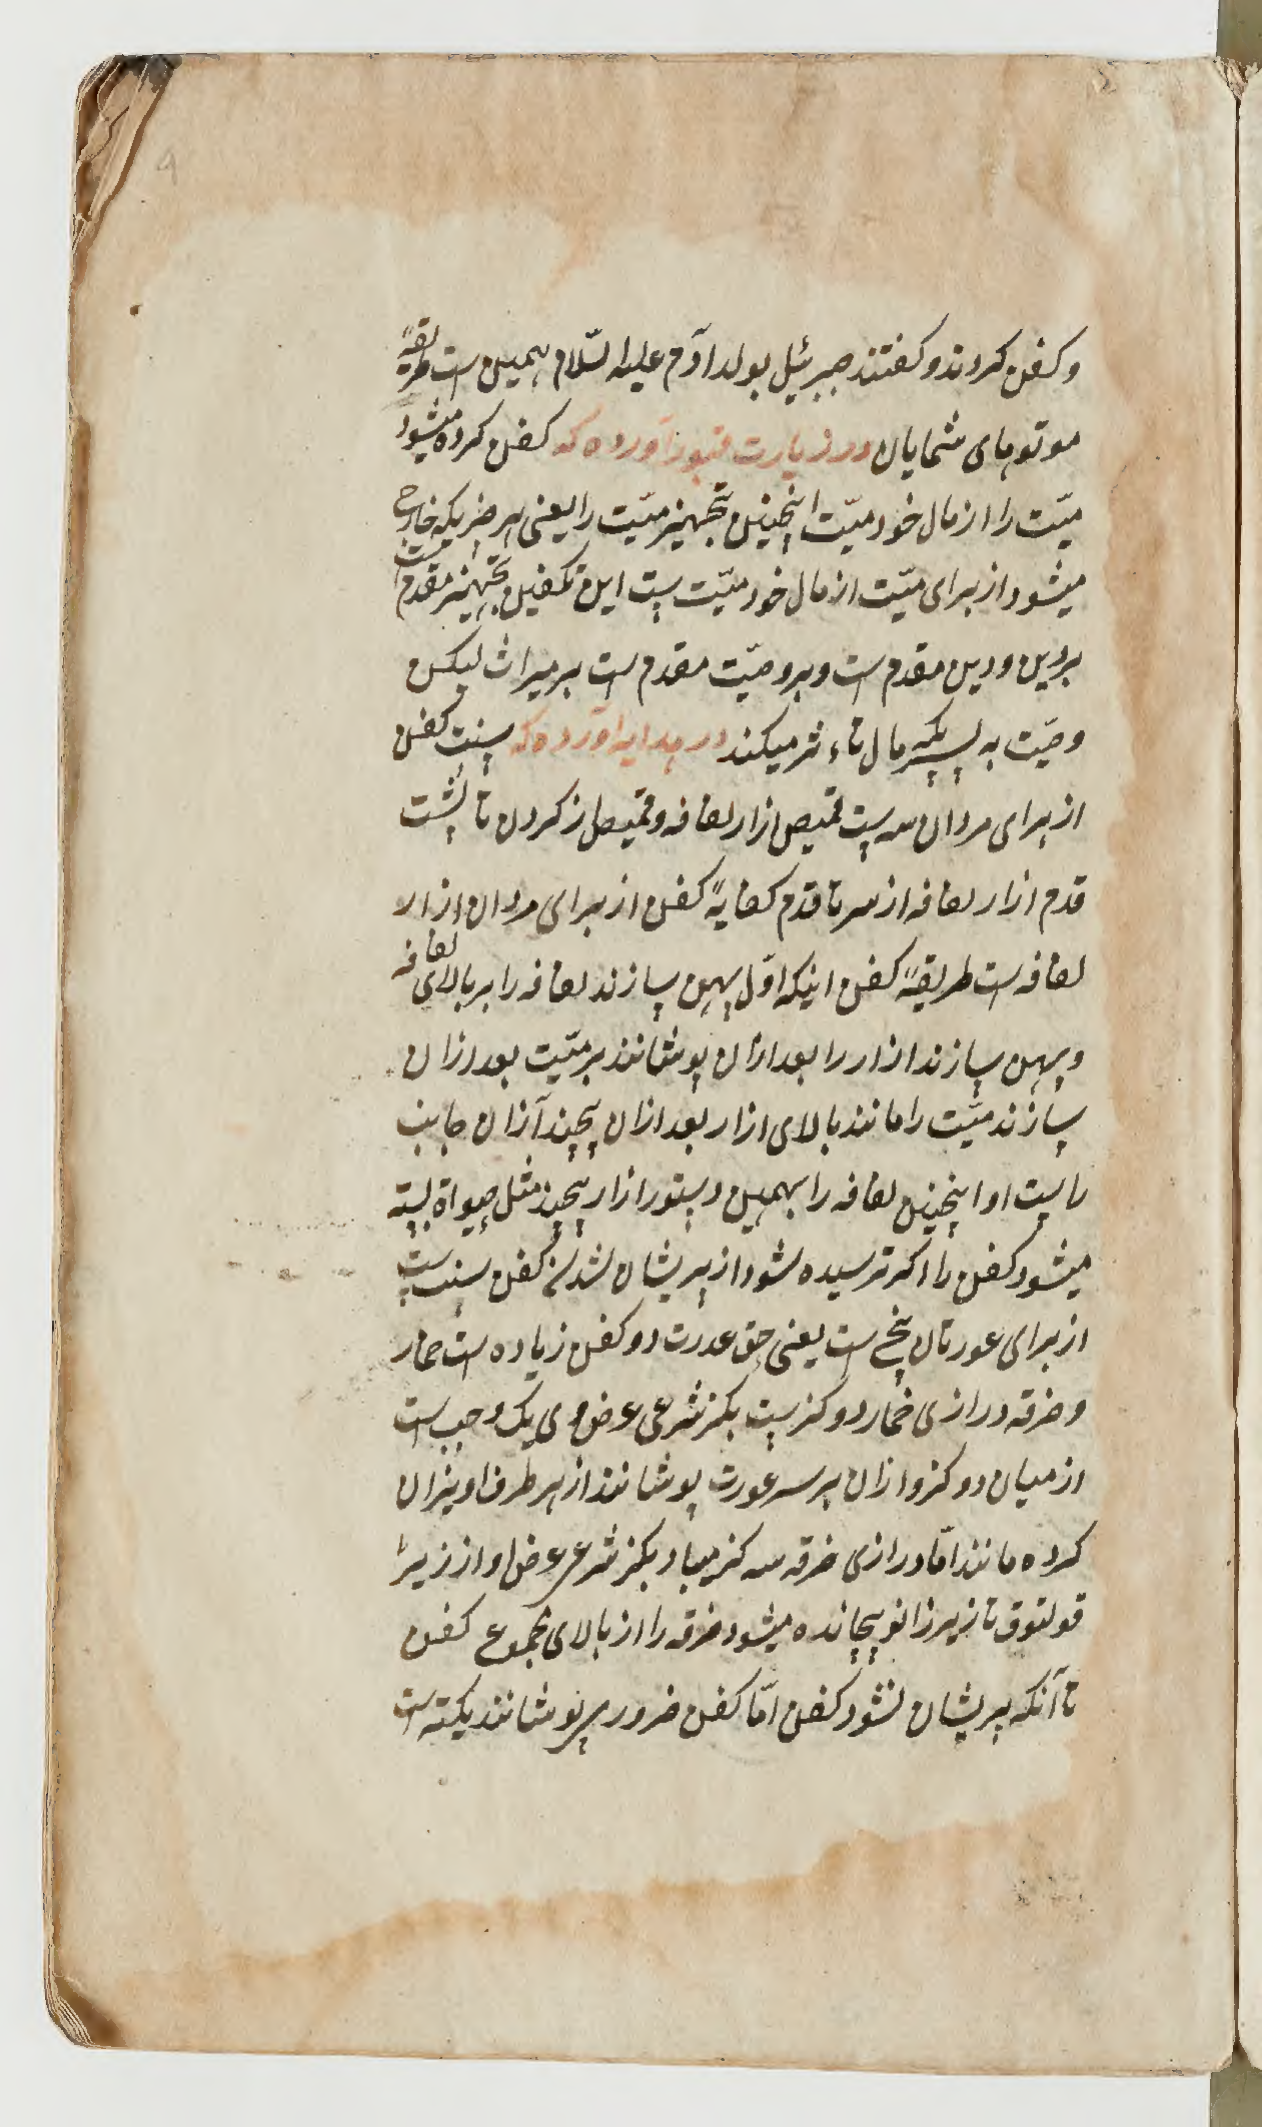 وکفن کردند و کفتند جبرئیل بولد آدم علیه السّلام همین است طریقهٔ
موتوهای شمایان در زیارت قبور آورده که کفن کرده میشود
میّت را از مال خود میّت اینچنین تجهیز میّت را یعنی هر چیزیکه خارج
میشود از برای میّت از مال خود میّت ست این تکفین تجهیز مقدم ست
بر دین و دین مقدم است و بر وصیّت مقدم است بر میراث لیکن
وصیّت به سیکه مال تاءثر میکند در هدایه آورده که سنت کفن
از برای مردان سه ست قمیص ازار لفافه و قمیص از کردن تا پشت
قدم ازار لفافه از سر تا قدم کفایهٔ کفن از برای مردان ازار
لفافه است طریقهٔ کفن اینکه اوّل پهن سازند لفافه را بر بالای لفافه
و پهن سازند ازار را بعد ازان پوشانند بر میّت بعد ازان
سازند میّت را مانند بالای ازار بعد ازان پیچند آزان جانب
راست او اینچنین لفافه را بهمین دستور ازار پیچند مثل حیواة بسته
میشود کفن را اکر ترسیده شود از پریشان شدن کفن سنت ست
از برای عورتان پنج است یعنی حق عورت دو کفن زیاده است خمار
و خرقه درازی خمار دو کز ست بکز شرعی عرض وی یک وجب است
از میان دو کز وازان بر سر عورت پوشانند از هر طرف اویزان
کرده مانند امّا درازی خرقه سه کز میباد بکز شرعی عرض او از زیر
قولتوق تا زیر زانو پیچانده میشود خرقه را از بالای مجموع کفن
تا آنکه پریشان نشود کفن امّا کفن ضروری پوشانند یکته است